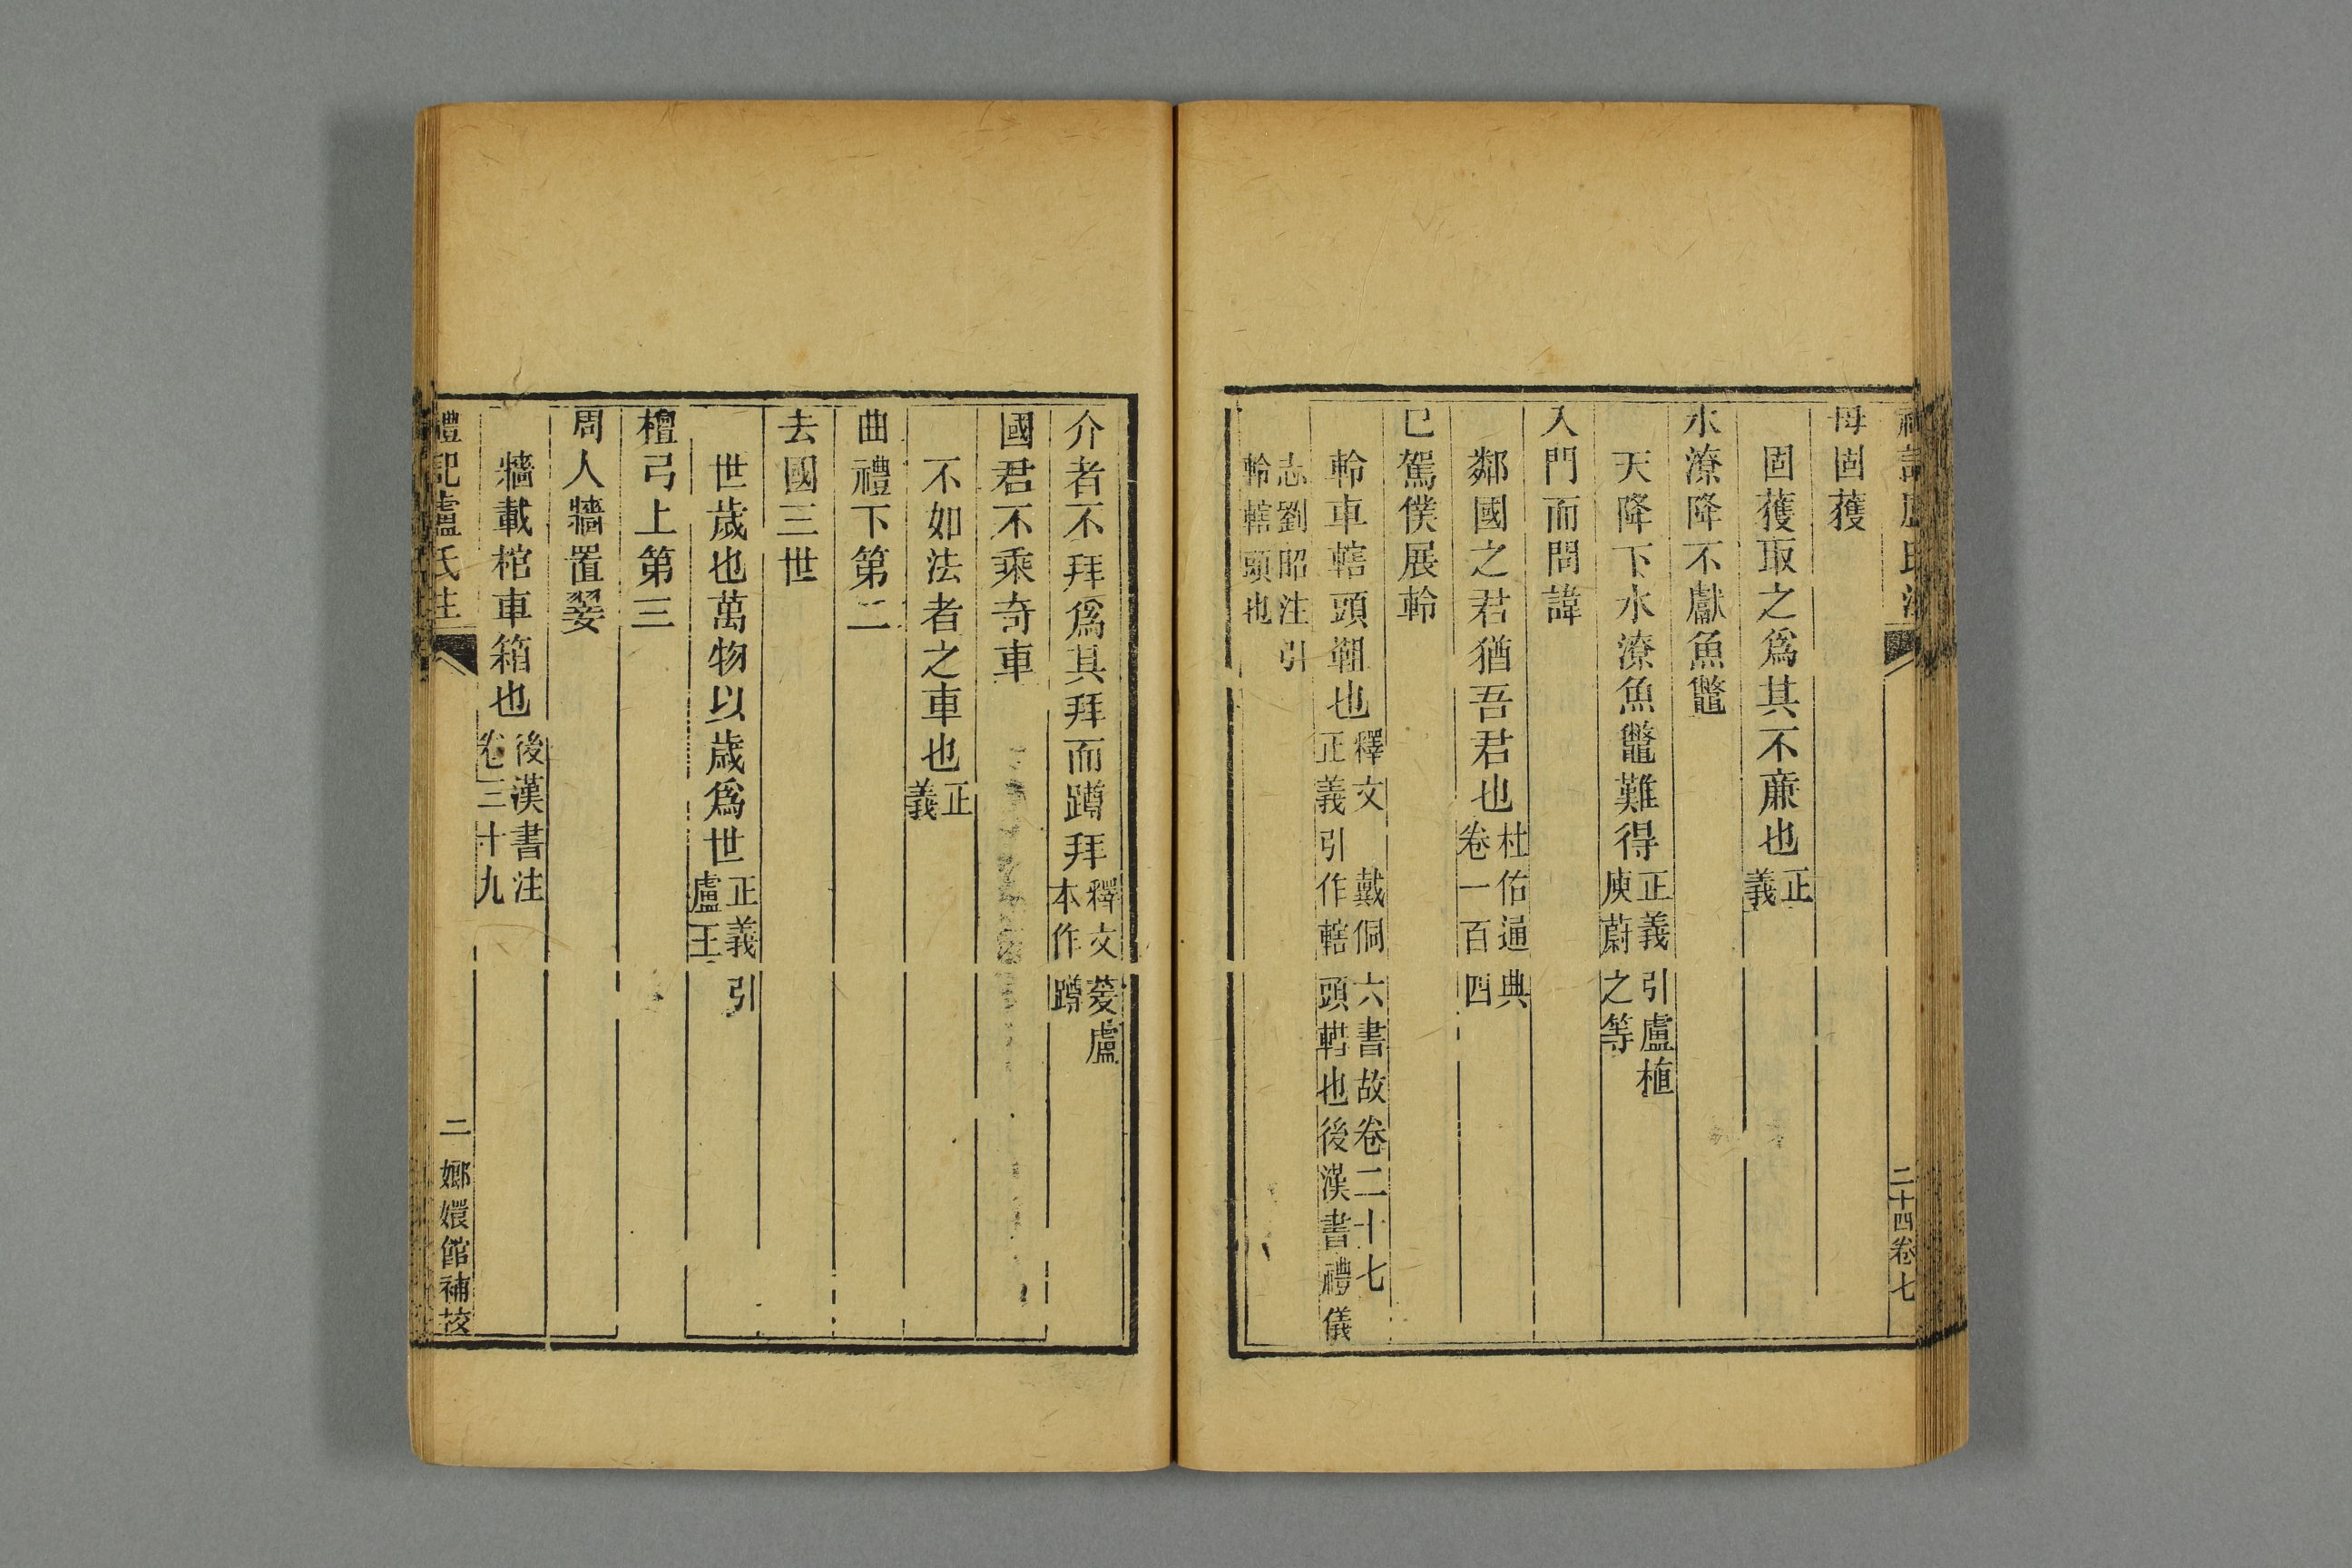 毋固獲
固獲取之爲其不廉也正義
水潦降不獻魚鼈
天降下水潦魚鼈難得正義引盧植庾蔚之等
入門而問諱
鄰國之君猶吾君也杜佑通典卷一百四
已駕僕展軨
軨車轄頭靼也釋文 戴侗六書故卷二十七正義引作轄頭轊也後漢書禮儀
志劉昭注引軨轄頭也
二十四卷七
介者不拜爲其拜而蹲拜釋文蓌盧本作蹲
國君不乘奇車
不如法者之車也正義
曲禮下第二
去國三世
世歲也萬物以歲爲世正義引盧王
檀弓上第三
周人牆置翣
牆載棺車箱也後漢書注卷三十九
禮記盧氏注
二
嫏嬛館補校